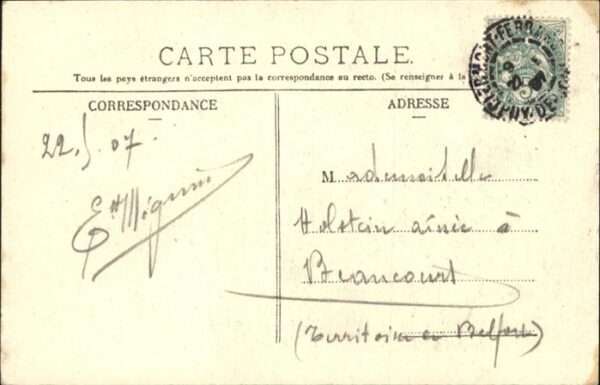 CARTE POSTALE.
Tous les pays étrangers n'acceptent pas la correspondance au recto. (Se renseigner à la
CORRESPONDANCE
ADRESSE
22. 5. 07.
Mademoiselle
Holstein ainée à
Beaucourt
(Territoire de Belfort)